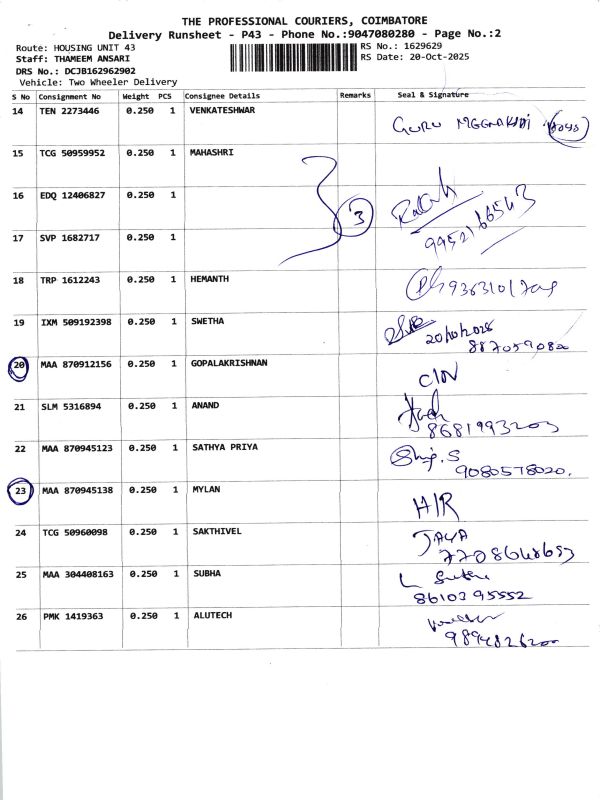 THE PROFESSIONAL COURIERS, COIMBATORE
Delivery Runsheet - P43 - Phone No.:9047080280 - Page No.:2
Route: HOUSING UNIT 43
RS No.: 1629629
Staff: THAMEEM ANSARI
RS Date: 20-Oct-2025
DRS No.: DCJB162962902
Vehicle: Two Wheeler Delivery
S No Consignment No Weight PCS Consignee Details Remarks Seal & Signature
14 TEN 2273446 0.250 1 VENKATESHWAR
GURU
15 TCG 50959952 0.250 1 MAHASHRI
16 EDQ 12406827 0.250 1
3
9952166543
17 SVP 1682717 0.250 1
18 TRP 1612243 0.250 1 HEMANTH
19 IXM 509192398 0.250 1 SWETHA
20/10/2025
887059080
20 MAA 870912156 0.250 1 GOPALAKRISHNAN
C/N
21 SLM 5316894 0.250 1 ANAND
8681993203
22 MAA 870945123 0.250 1 SATHYA PRIYA
9080578020.
23 MAA 870945138 0.250 1 MYLAN
H/R
24 TCG 50960098 0.250 1 SAKTHIVEL
JAYA
7708648653
25 MAA 304408163 0.250 1 SUBHA
8610395552
26 PMK 1419363 0.250 1 ALUTECH
9894826200